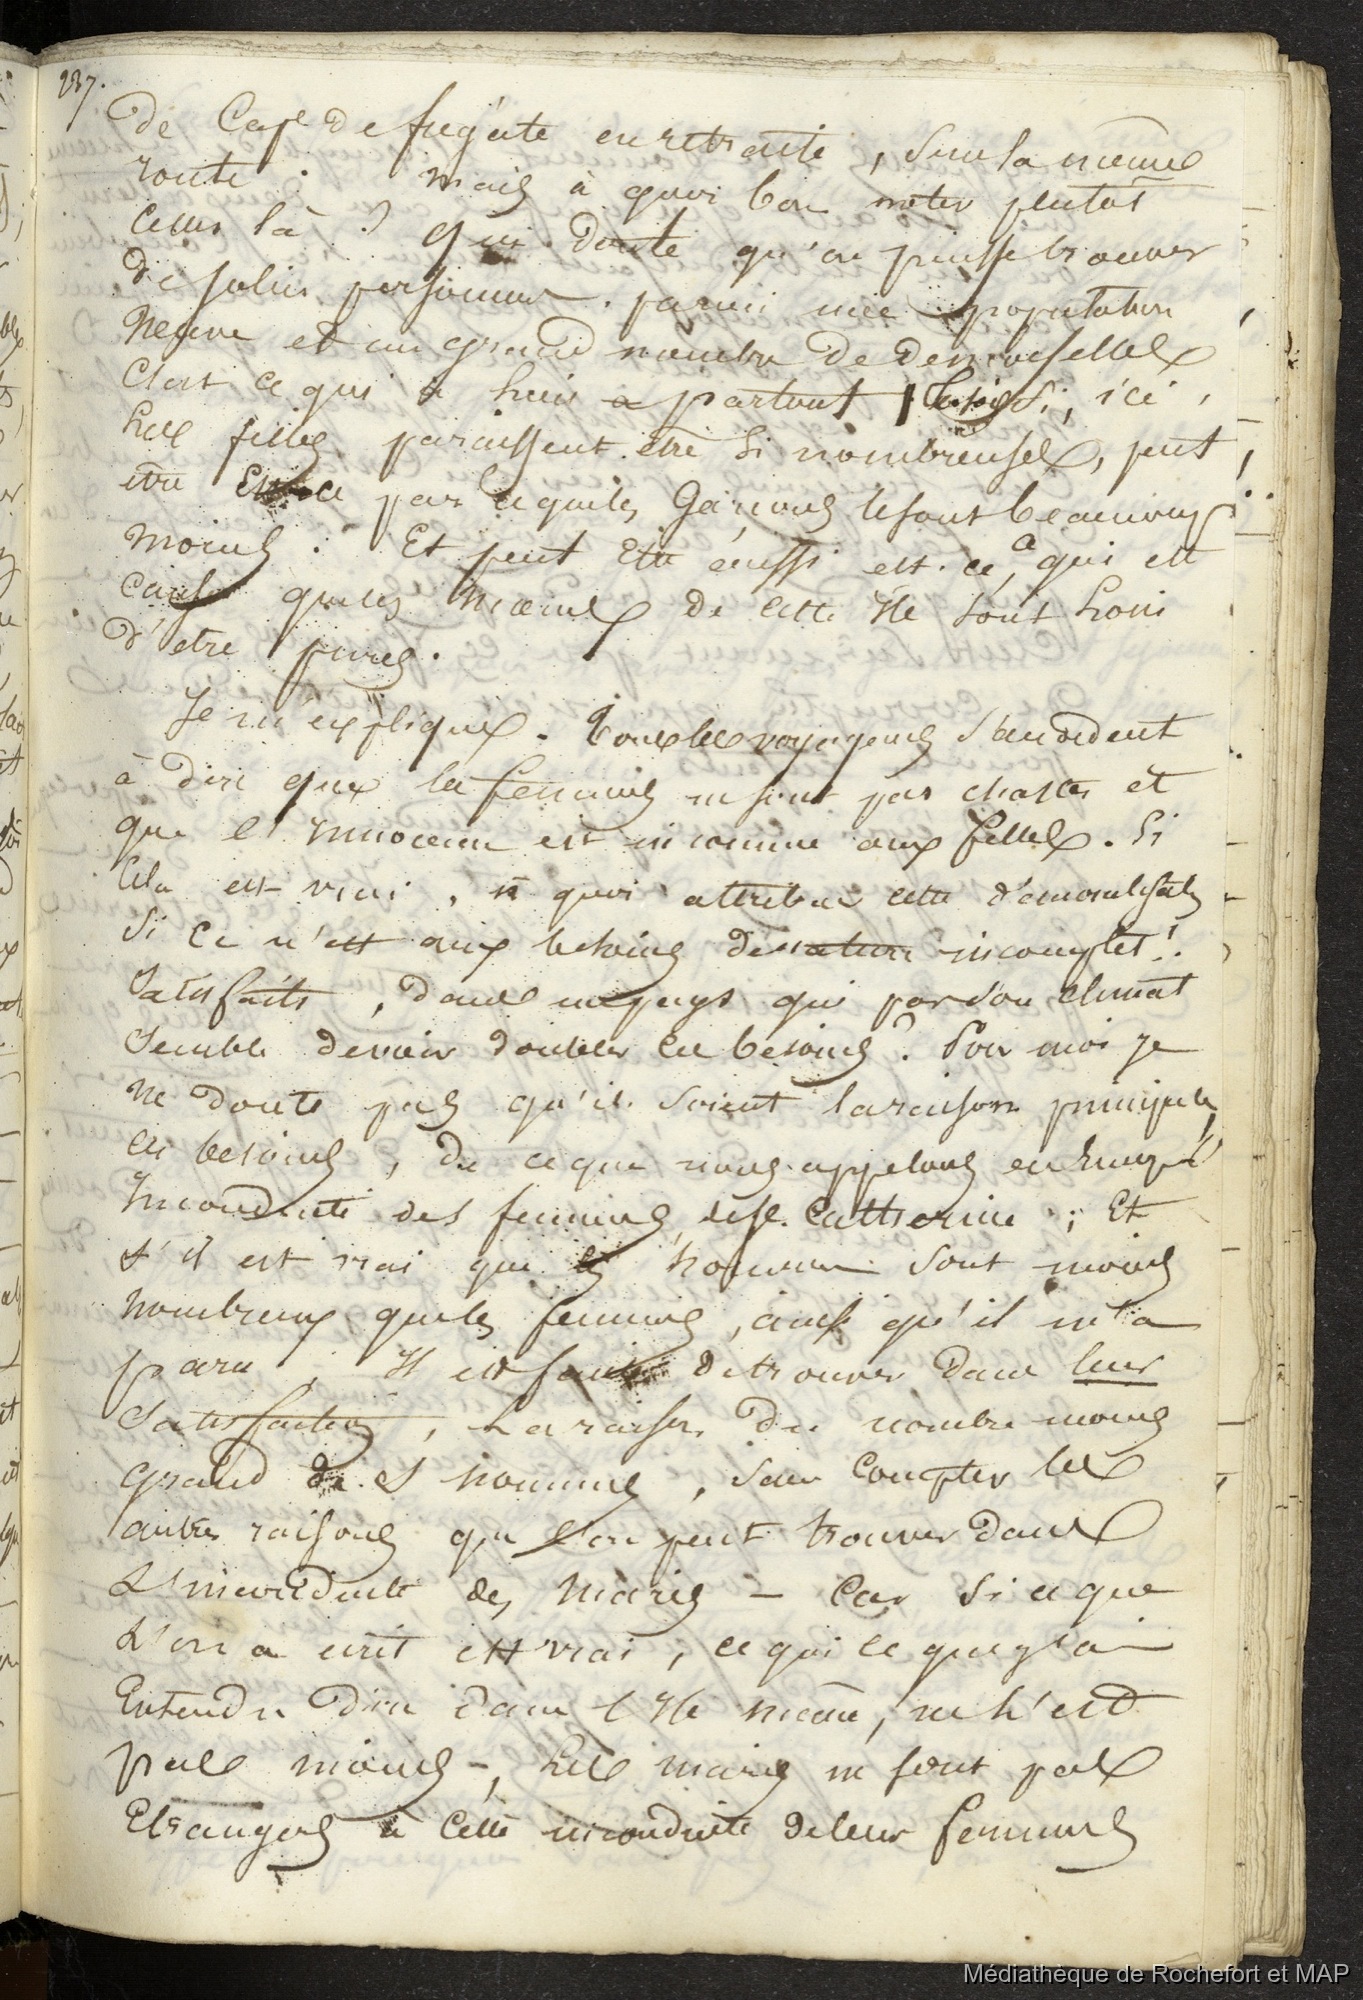 237.
De Cape de frégate en retraite, sur la même
route. mais à quoi bon noter plutôt
ceux là ? qui doute qu'on puisse trouver
de jolies personnes parmi une population
neuve et un grand nombre de demoiselles
C'est ce qui a lieu a partout Si, ici,
les filles paraissent être Si nombreuses, peut
être Est ce par ce que les Garçons le sont beaucoup
moins. Et peut Etre aussi est-ce, a qui est
cause que les mœurs de cette Ile sont loin
d'etre pures.
Je m'explique. Tous les voyageurs s'accordent
à dire que les femmes ne sont pas chastes et
que l'innocence est inconnue aux filles. Si
Cela est vrai, à quoi attribuer cette démoralisation
Si ce n'est aux besoins des incomplet!.
Satisfaits, dans un pays qui par son climat
semble devoir doubler ces besoins ? Pour moi je
ne doute pas qu'ils soient la raison principale,
ces besoins, de ce que nous appelons en Europe
Inconduite des femmes de Ste. Catherine ; Et
s'il est vrai que les hommes sont moins
nombreux que les femmes, ainsi qu'il m'a
paru, Il est de trouver dans leur
Satisfaction, La raison du nombre moins
grand des hommes, sans Compter les
autres raisons que l'on peut trouver dans
L'inconduite des maris – Car Si ce que
L'on a écrit est vrai, ce qui ce que j'ai
Entendu dire dans l'Ile même, ne l'est
pas moins –, Les maris ne sont pas
Etrangers à Cette inconduite de leurs femmes
Médiathèque de Rochefort et MAP